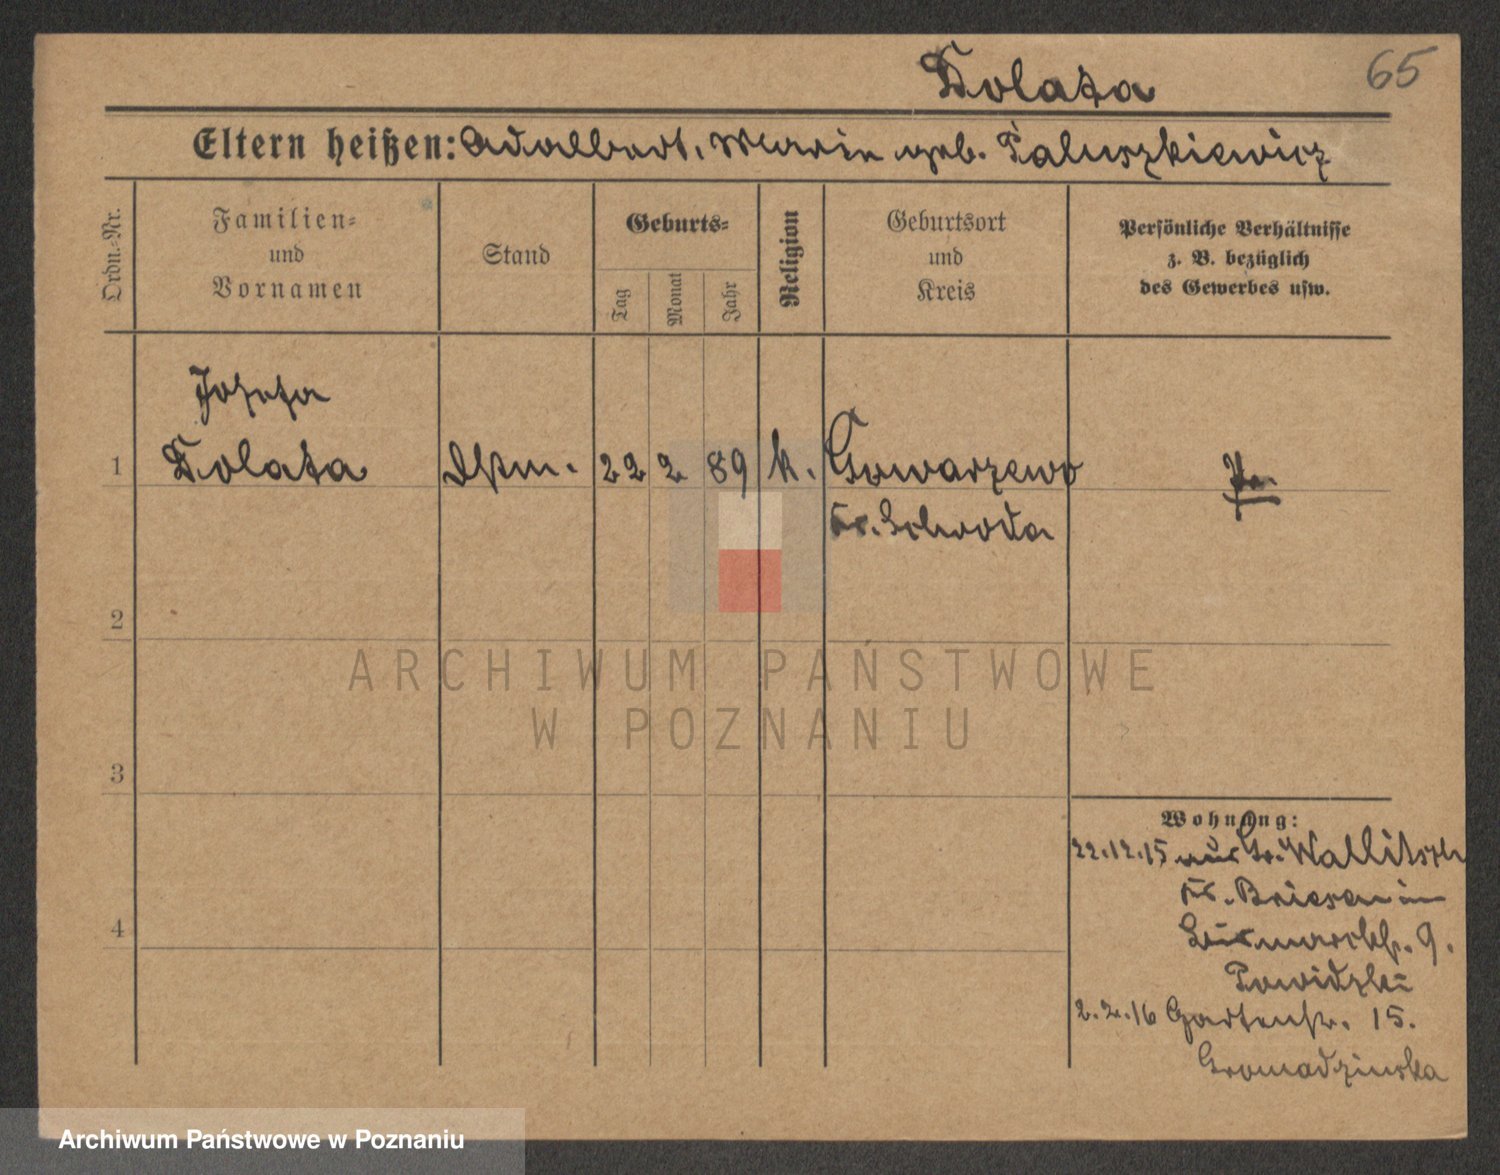 Dolata
65
Eltern heißen: Adalbert, Marie geb. Paluszkiewicz
Ordn.-Nr.
Familien-
und
Vornamen
Stand
Geburts-
Tag
Monat
Jahr
Religion
Geburtsort
und
Kreis
Persönliche Verhältnisse
z. B. bezüglich
des Gewerbes usw.
Jozefa
1 Dolata Dstm. 22 2 89 k. Gowarzewo Pr.
Kr. Schroda
2
3
4
ARCHIWUM PAŃSTWOWE
W POZNANIU
Wohnung:
22.12.15 aus Gr. Wallitsch
Kr. Briesen in
Bismarckstr. 9.
Powidzki
2.2.16 Gartenstr. 15.
Gromadzinska
Archiwum Państwowe w Poznaniu